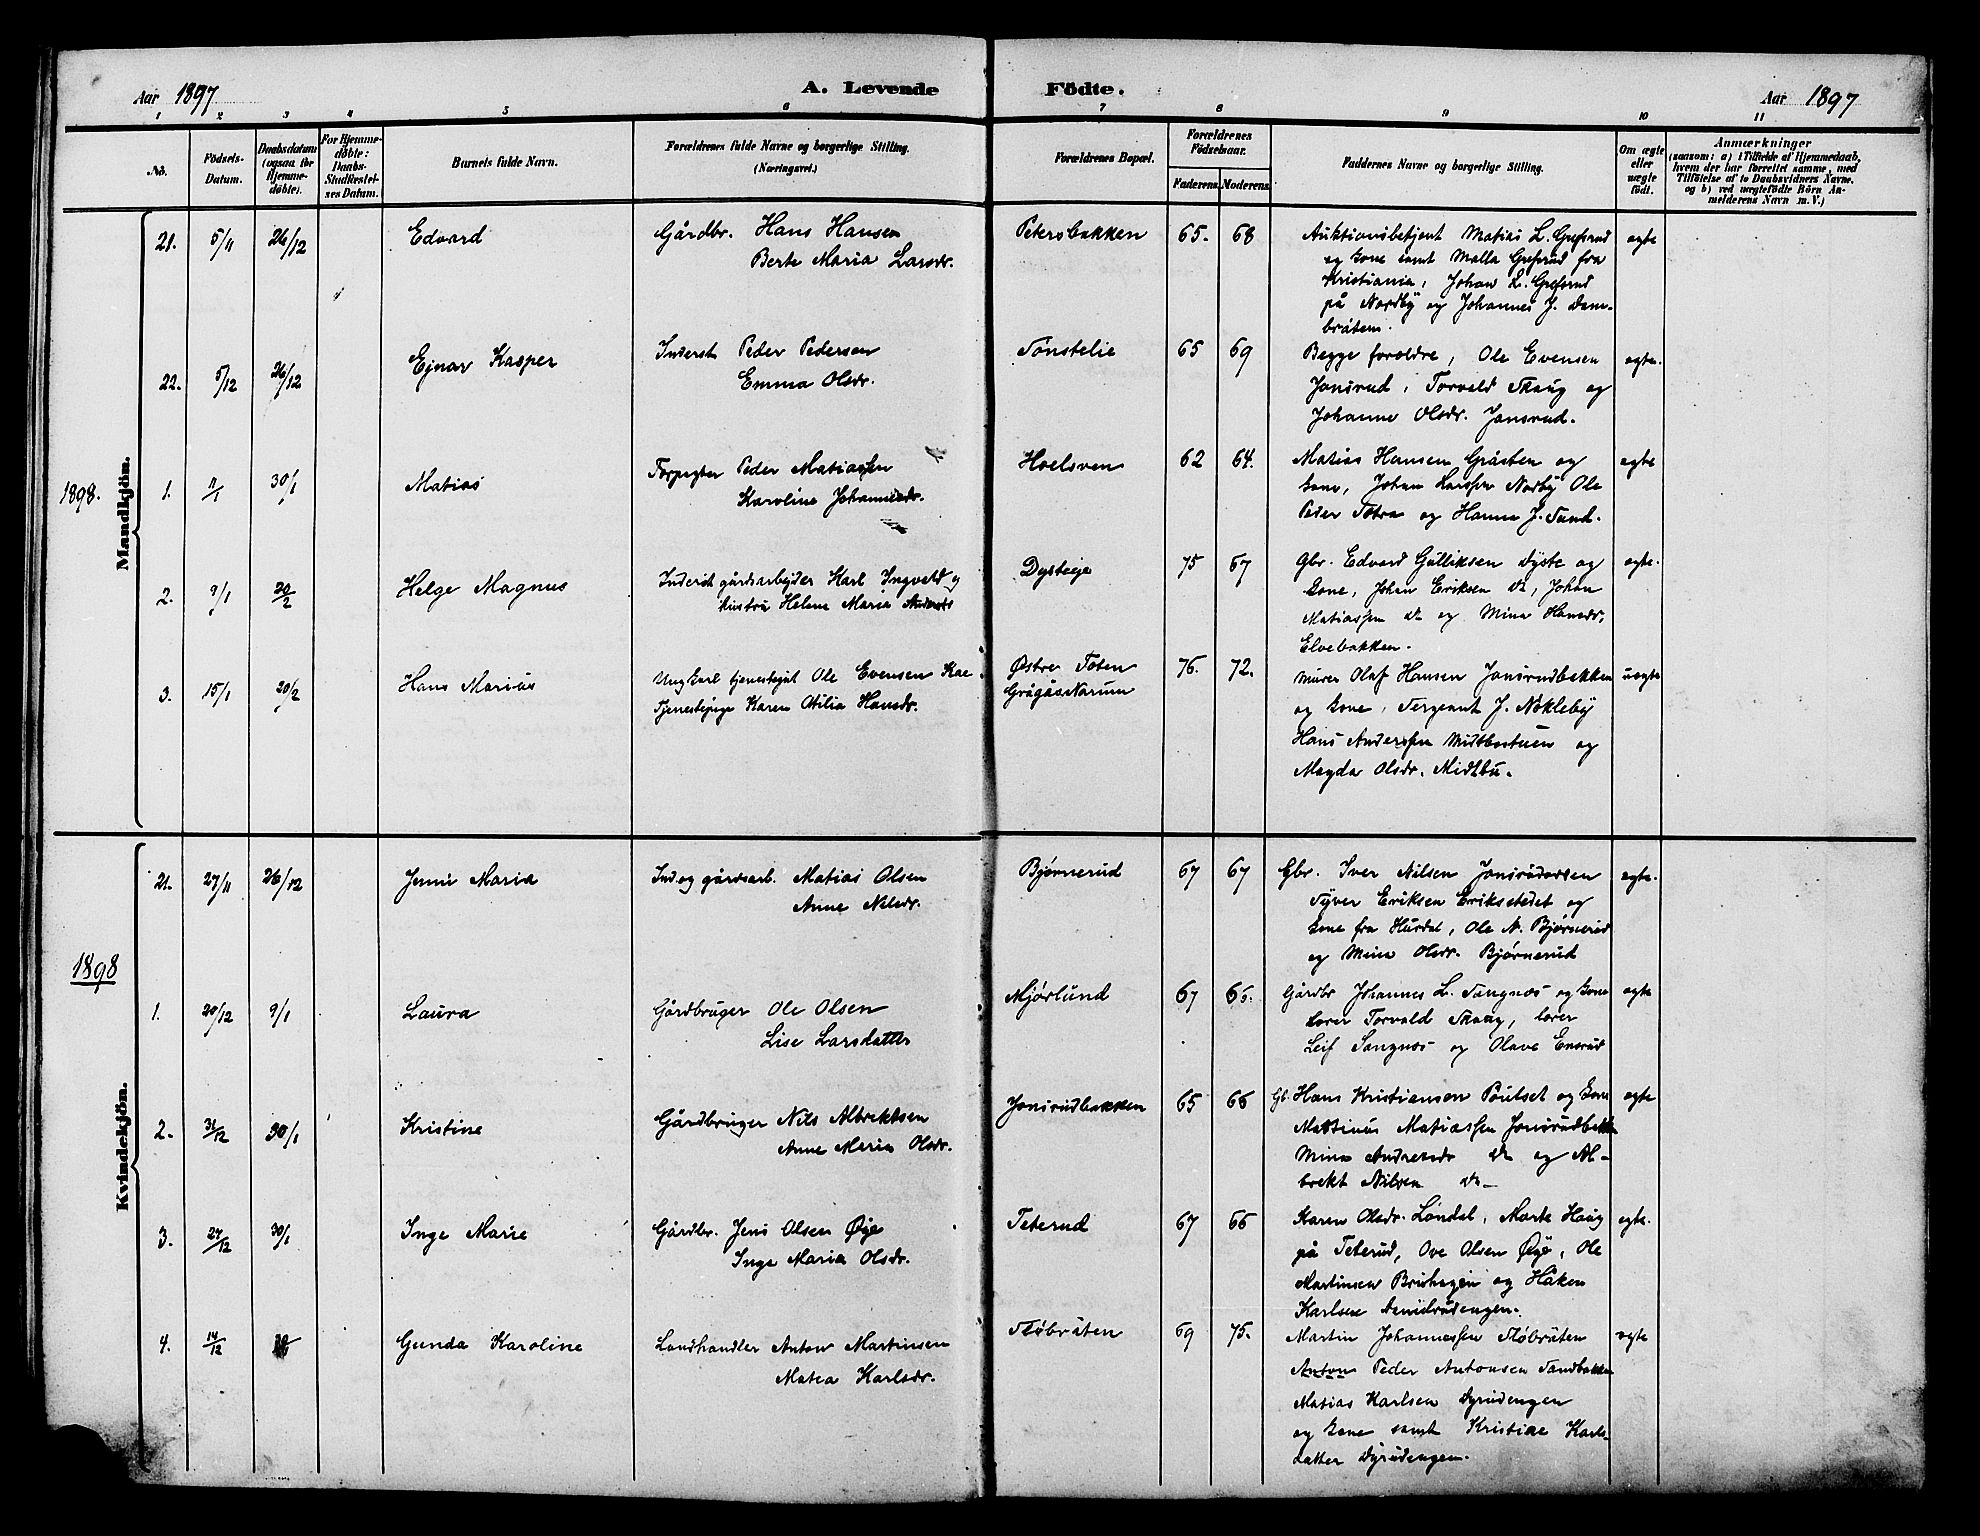 Aar 1897
A. Levende Födte.
Aar 1897
1 2 3 4 5 6 7 8 9 10 11
No. Födsels-Datum. Daabsdatum (ogsaa for Hjemme-döbte). For Hjemme-döbte: Daabs-Stadfæstel-ses Datum. Barnets fulde Navn. Forældrenes fulde Navne og borgerlige Stilling. (Næringsvei.) Forældrenes Bopæl. Forældrenes Födselsaar. Faderens. Moderens. Faddernes Navne og borgerlige Stilling. Om ægte eller uægte födt. Anmærkninger (saasom: a) i Tilfælde af Hjemmedaab, hvem der har forrettet samme, med Tilföielse af to Daabsvidners Navne. og b) ved uægtefödte Börn Anmelderens Navn m. V.)
Mandkjön.
21. 5/11 26/12 Edvard Gårdbr. Hans Hansen Petersbakken 65. 68 Auktionsbetjent Matias L. Grefsrud ægte
Berte Maria Larsdr. og kone samt Malla Grefsrud fra
Kristiania, Johan L. Grefsrud
på Nordby og Johannes J. Dam-
bråten.
22. 5/12 26/12 Ejnar Kasper Inderst Peder Pedersen Tonstelie 65 69 Begge forældre, Ole Evensen ægte.
Emma Olsdr. Jonsrud, Torvald Skaug og
Johanne Olsdr. Jonsrud.
1898.
1. 11/1 30/1 Matias Forpagter Peder Matiassen Hoelsven 62 64. Matias Hansen Gråsten og ægte
Karoline Johannesdr. kone, Johan Larssen Norby Ole
Peder Totra og Hanna J. Sund.
2. 9/1 20/2 Helge Magnus Inderst gårdsarbejder Karl Ingvald og Dysteeje 75 67 Gbr. Edvard Gulliksen Dyste og ægte.
hustru Helene Maria Andersdr kone, Johan Eriksen do, Johan
Matiassen do og Mina Hansdr.
Elvebakken.
3. 15/1 20/2 Hans Marius Ungkarl tjenestegut Ole Evensen Kae Østre Toten 76. 72. Murer Olaf Hansen Jonsrudbakken uægte
Tjenestepige Karen Otilia Hansdr. Grågås Narum og kone, Sergeant J. Nøkleby
Hans Anderssen Midtbøstuen og
Magda Olsdr. Midtbu.
Kvindekjön.
21. 27/11 26/12 Jenni Maria Ind. og gårdsarb. Matias Olsen Bjørnerud 67 67 Gbr. Iver Nilsen Jonsrudåsen ægte.
Anne Nilsdr. Syver Eriksen Eriksstedet og
kone fra Hurdal, Ole N. Bjørnerud
og Mina Olsdr. Bjørnerud
1898
1. 20/12 9/1 Laura Gårdbruger Ole Olsen Mjørlund 67 66. Gårdbr Johannes L. Sangnæs og kone ægte
Lise Larsdatter lærer Torvald Skaug, lærer
Leif Sangnæs og Olave Ensrud
2. 31/12 30/1 Kristine Gårdbruger Nils Albrektsen Jonsrudbakken 65 66 Gb. Hans Kristiansen Poulset og kone ægte
Anne Maria Olsdr. Mattinus Matiassen Jonsrudbakk
Mina Andresdr do og Al-
brekt Nilsen do
3. 27/12 30/1 Inge Marie Gårdbr. Jens Olsen Øye Teterud 67 66 Karen Olsdr. Løndal, Marte Haug ægte.
Inge Maria Olsdr. på Teterud, Ove Olsen Øye, Ole
Martinsen Brishagen og Håken
Karlsen
4. 14/12 Gunda Karoline Landhandler Anton Martinsen Støbråten 69 75. Martin Johannessen Støbråten ægte
Matea Karlsdr. Anton Peder Antonsen Sandbakken
Matias Karlsen Dyrudengen
og kone samt Kristine Karls-
datter Dyrudengen.